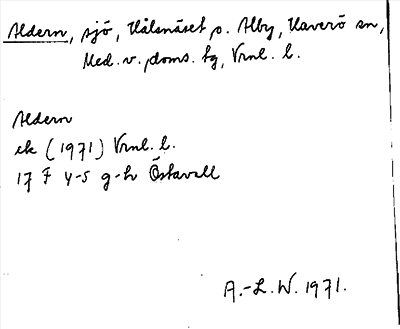 Aldern, sjö, Hålsnäset o. Alby, Haverö sn,
Med. v. doms. tg, Vrnl. l.
Aldern
ek (1971) Vrnl. l.
17 F 4-5 g-h Östavall
A.-L. W. 1971.